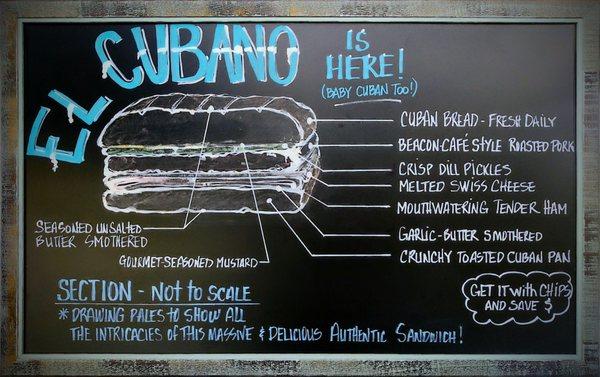 EL CUBANO
IS
HERE!
(BABY CUBAN TOO!)
CUBAN BREAD - FRESH DAILY
BEACON-CAFÉ STYLE ROASTED PORK
CRISP DILL PICKLES
MELTED SWISS CHEESE
MOUTHWATERING TENDER HAM
GARLIC-BUTTER SMOTHERED
CRUNCHY TOASTED CUBAN PAN
SEASONED UNSALTED
BUTTER SMOTHERED
GOURMET-SEASONED MUSTARD
SECTION - NOT TO SCALE
* DRAWING PALES TO SHOW ALL
THE INTRICACIES OF THIS MASSIVE & DELICIOUS AUTHENTIC SANDWICH!
GET IT WITH CHIPS
AND SAVE $